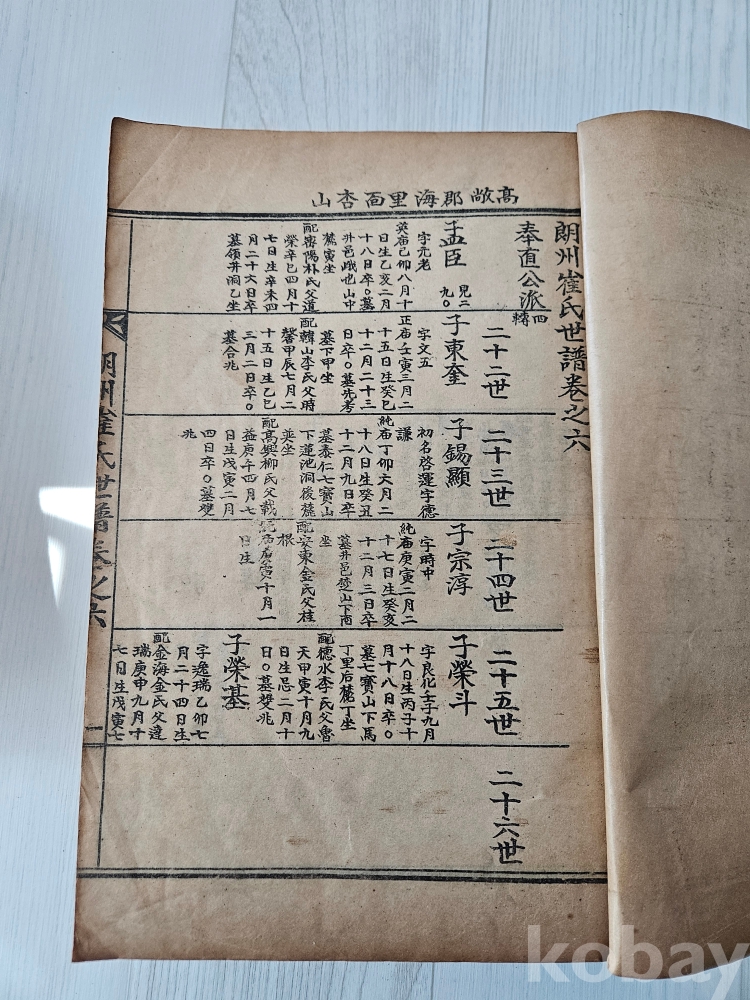 高敞郡海里面杏山
朗州崔氏世譜卷之六
奉直公派
四轉
子孟臣
兄二
九〇
字元老
英庙己卯八月十
日生乙亥二月
十八日卒〇墓
井邑峨也山中
麓寅坐
配密陽朴氏父道
榮辛巳四月十
七日生辛未四
月二十六日卒
墓領井洞乙坐
二十二世
子東奎
字文五
正庙壬寅三月二
十五日生癸巳
十二月二十三
日卒〇墓先考
墓下甲坐
配韓山李氏父時
馨甲辰七月二
十五日生乙巳
三月二日卒〇
墓合兆
二十三世
子錫顯
初名啓運字德
謙
純庙丁卯六月二
十八日生癸丑
十二月九日卒
墓泰仁七寶山
下蓮池洞後麓
癸坐
配高興柳氏父載
益庚午四月七
日生戊寅二月
四日卒〇墓雙
兆
二十四世
子宗淳
字時中
純庙庚寅二月二
十七日生癸亥
十二月三日卒
墓井邑楚山下南
坐
配安東金氏父桂
根
純庙庚寅十月一
日生
二十五世
子榮斗
字良化壬子九月
十八日生丙子十
月十八日卒〇
墓七寶山下馬
丁里后麓丁坐
配德水李氏父魯
天甲寅十月九
日生忌二月十
日〇墓雙兆
子榮基
字逸瑞乙卯七
月二十四日生
配金海金氏父達
瑞庚申九月十
七日生戊寅七
二十六世
朗州崔氏世譜卷之六
一
kobay